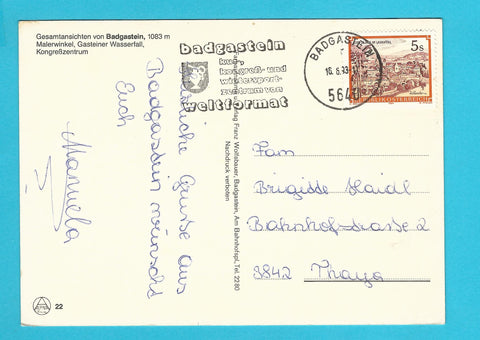 Gesamtansichten von Badgastein, 1083 m
Malerwinkel, Gasteiner Wasserfall,
Kongreßzentrum
badgastein
kur-,
kongreß- und
wintersport-
zentrum von
weltformat
BADGASTEIN
5640
5s
REPUBLIK ÖSTERREICH
Herzliche Grüße aus
Badgastein wünscht
Euch
Manuela
Verlag Franz Wolfsbauer, Badgastein, Am Bahnhofspl., Tel. 22 80
Nachdruck verboten
Fam
Brigitte Haidl
Bahnhofstrasse 2
3842 Thaya
22